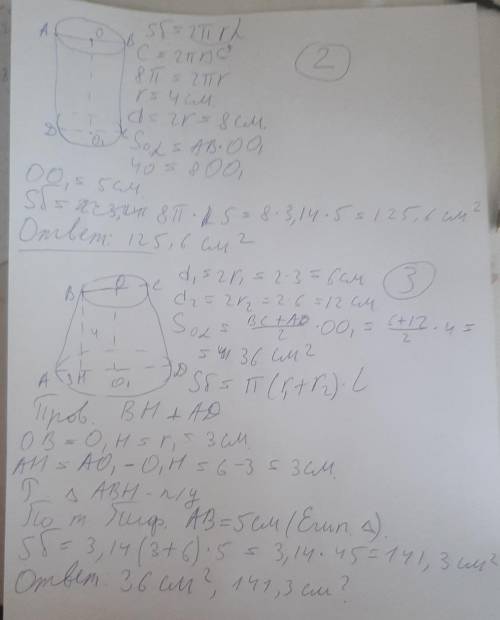 Sб = 2πrL
C = 2πr
8π = 2πr
r = 4 см
d = 2r = 8 см.
Sос = AB · OO₁
40 = 8 OO₁
OO₁ = 5 см.
Sб = 8π · 5 = 8 · 3,14 · 5 = 125,6 см²
Ответ: 125,6 см²
2
A O B
D O₁
3
d₁ = 2r₁ = 2·3 = 6 см
d₂ = 2r₂ = 2·6 = 12 см
Sос = (BC + AD)/2 · OO₁ = (6+12)/2 · 4 =
= 36 см²
Sб = π(r₁ + r₂) · L
B O C
4
A 3 H O₁ D
Пров. BH ⊥ AD
OB = O₁H = r₁ = 3 см.
AH = AO₁ − O₁H = 6 − 3 = 3 см.
Δ ABH - п/у
По т. Пиф. AB = 5 см (Егип. Δ).
Sб = 3,14 (3+6) · 5 = 3,14 · 45 = 141,3 см²
Ответ 36 см², 141,3 см².